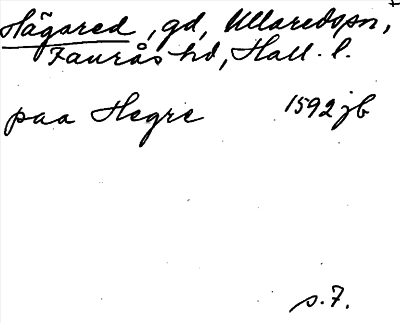 Hägared, gd, Ullaredspn,
Faurås hd, Hall. l.
paa Hegre 1592 jb
s. 7.